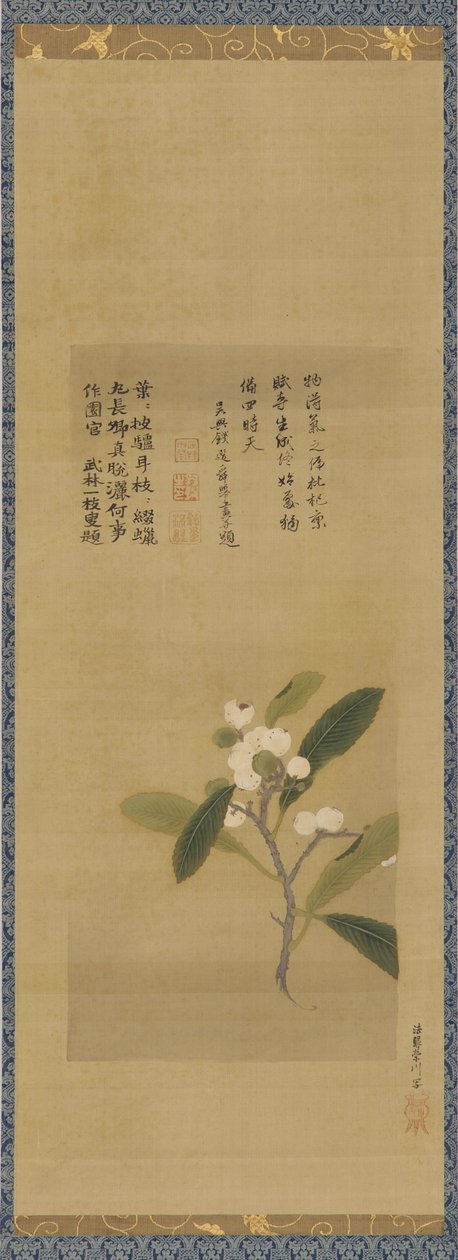 物得氣之偏枇杷稟
賦專生成終始處獨
備四時天
吳興錢選舜舉畫并題
葉〻披驢耳枝〻綴蠟
丸長卿真脫灑何事
作園官 武林一枝叟題
法眼榮川写